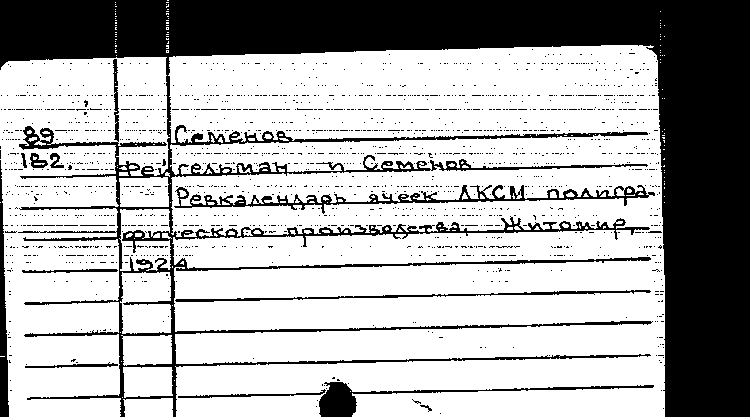 89 Семенов
182. Фейгельман и Семенов
Ревкалендарь ячеек ЛКСМ полигра-
фического производства, Житомир,
1924